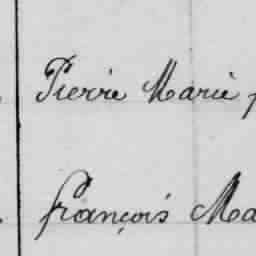 Pierre Marie
françois Ma